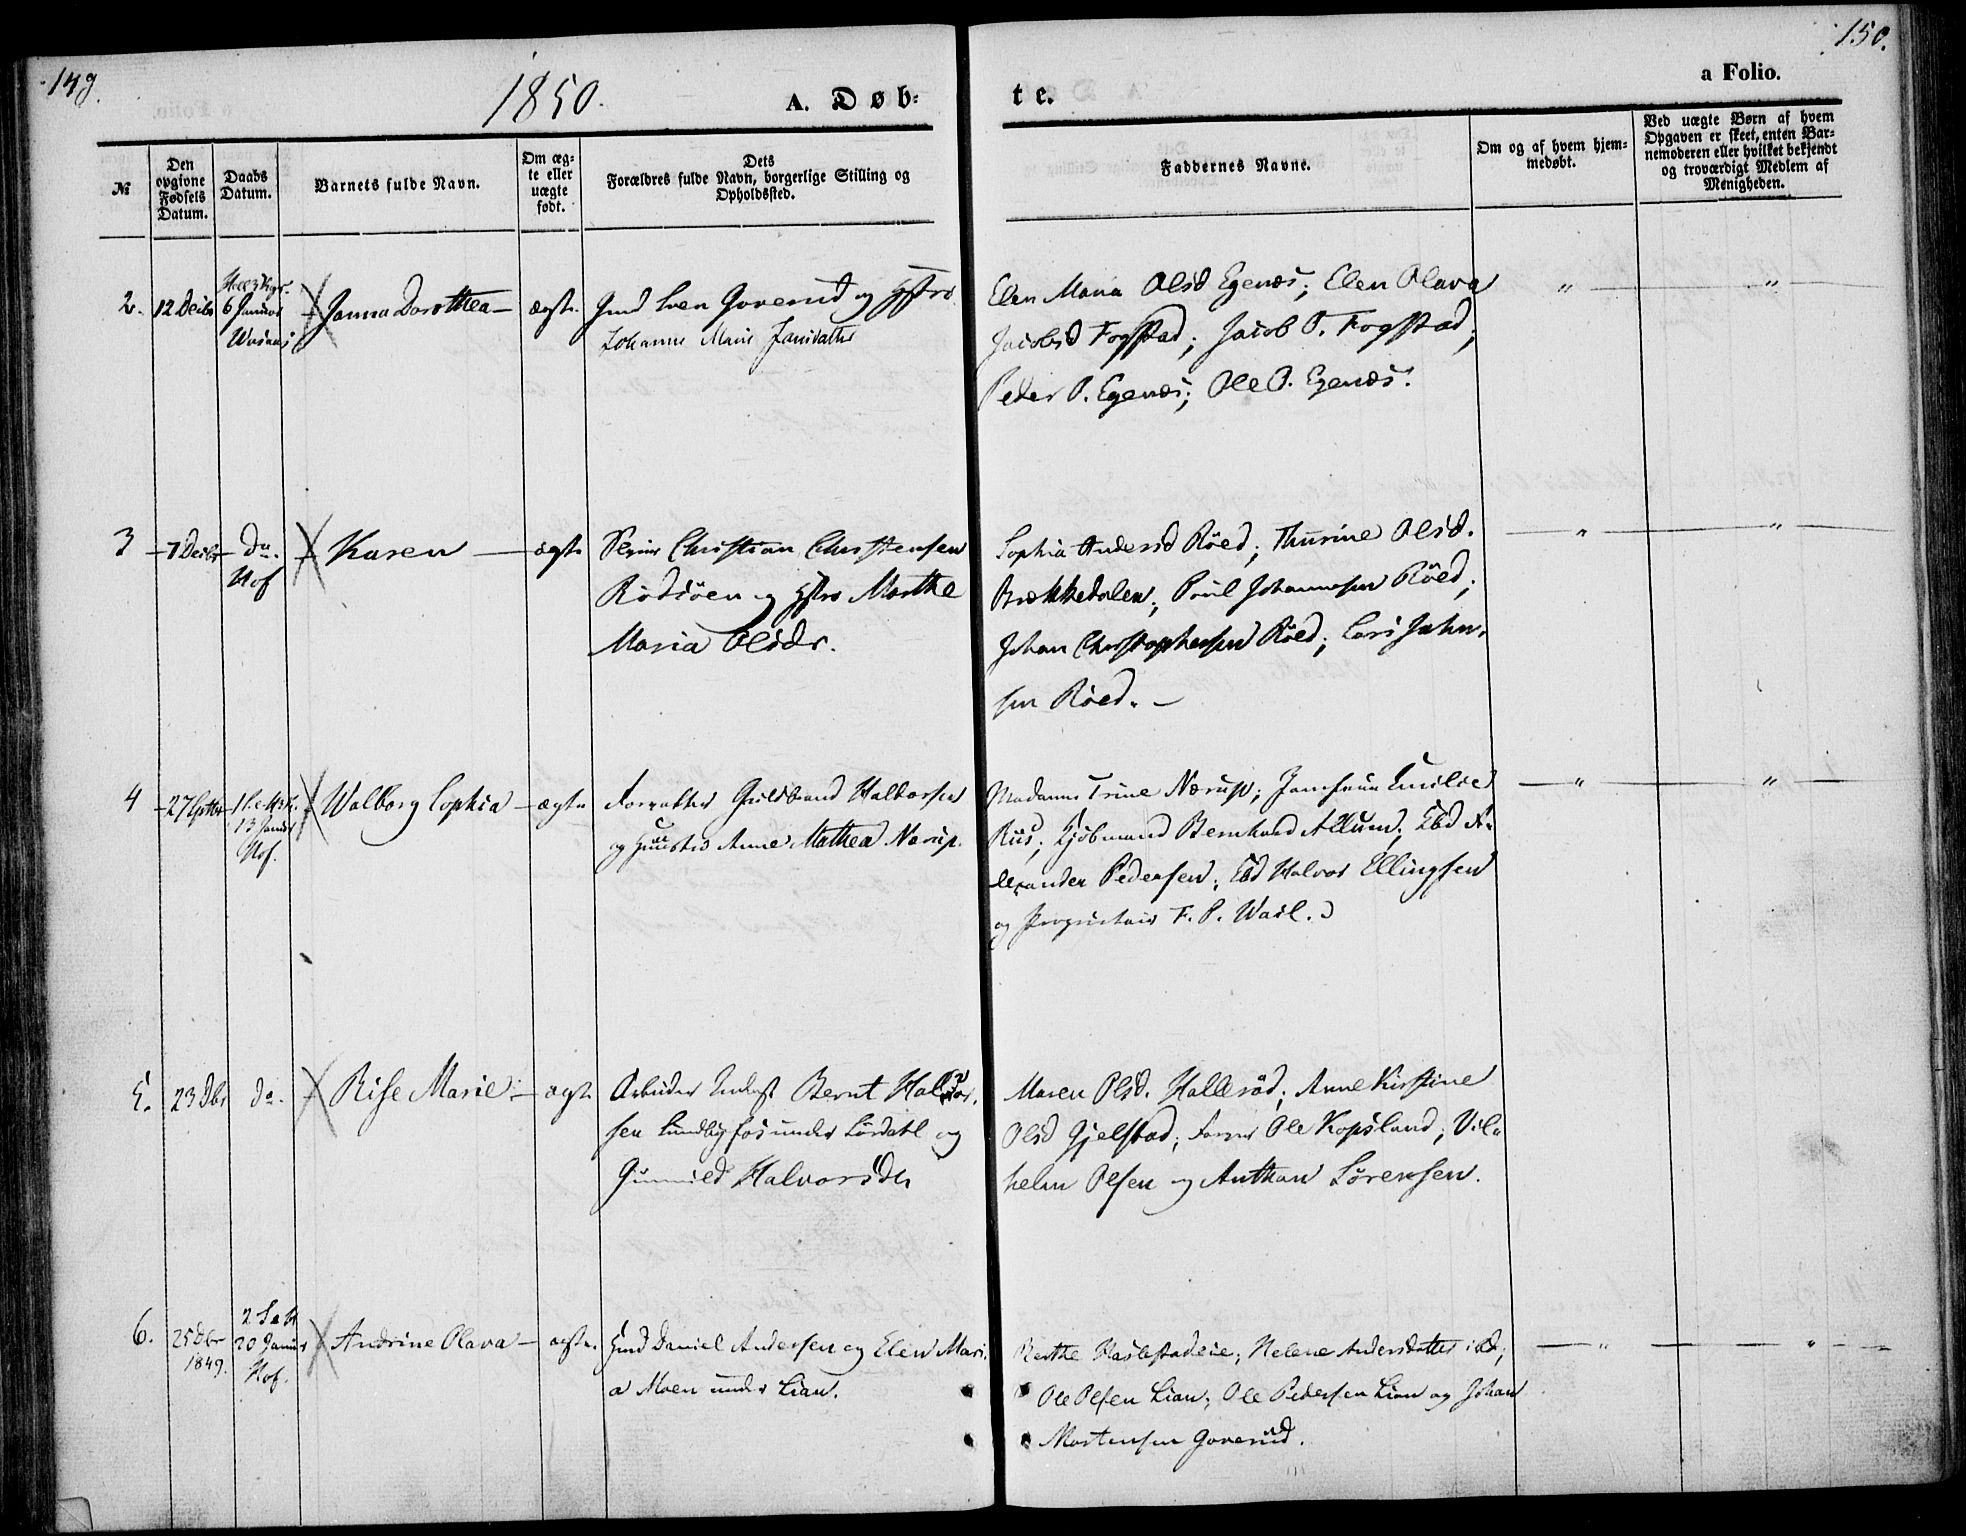 149.
150.
1850.
A. Døb-
te.
a Folio.
№
Den opgivne Fødsels Datum.
Daabs Datum.
Barnets fulde Navn.
Om ægte eller uægte født.
Dets Forældres fulde Navn, borgerlige Stilling og Opholdssted.
Faddernes Navne.
Om og af hvem hjem-
medøbt.
Ved uægte Børn af hvem
Opgaven er skeet, enten Bar-
nemoderen eller hvilket bekjendt
og troværdigt Medlem af
Menigheden.
2. 12 Decbr 6 Januar Janna Dorothea ægte Gmd Iver Goverud og Hstro
Johanne Marie Jansdatter
Elen Maria Olsd Egenæs; Elen Olava
Jacobsd Fogstad; Jacob P. Fogstad;
Peder P. Egenæs; Ole P. Egenæs.
" "
3 7 Decbr do. Hof Karen ægte Christian Christensen
Rödsöen og Hstro Marthe
Maria Olsdr.
Sophia Andersd Röed; Thurine Olsd.
Brækkedalen; Poul Johannesen Röed;
Johan Christophersen Röed; Lars Johan-
sen Röed. –
" "
4 27 Septbr 13 Januar Hof. Walborg Sophia ægte Forvalter Guldbrand Halvorsen
og Hustro Anne Mathea Nærup.
Madame Trine Nærup; Jomfrue Emilie
Riis; Kjöbmand Bernhard Allum; Ebd A-
lexander Pedersen; Ebd Halvor Ellingsen
og Proprietair F. P. Wail.
" "
5. 23 Dbr do. Rise Marie ægte Arbeider Inderst Bernt Halvor-
sen under og
Gunnild Halvorsdr
Maren Olsd. Halleröd; Anne Kirstine
Olsd Gjelstad; Ole Kopsland; Vil-
helm Olsen og Anthon Sörensen.
6. 25 Dbr 1849. 20 Januar Hof. Andrine Olava ægte. Gmd Daniel Andersen og Elen Mari-
a Moen under Lian.
Berthe Haslestadeie; Helene Andersdatter ibd;
Ole Olsen Lian; Ole Pedersen Lian og Johan
Mortensen Goverud.
" "